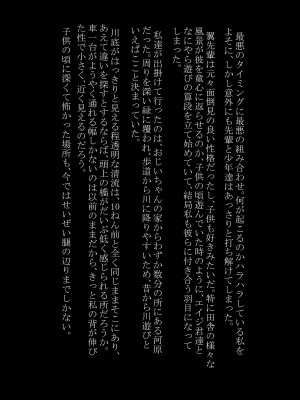 最悪のタイミングに最悪の組み合わせ、何が起こるのかハラハラしている私を
よそに、しかし意外にも先輩と少年達はあっさりと打ち解けてしまった。
翼先輩は元々面倒見の良い性格だったし、子供も好きみたいだ。特に田舎の様々な
風景が彼を童心に返らせるのか、子供の頃遊んでいた時のように、エイジ君達と
なにやら遊びの算段を立て始めていて、結局私も彼らに付き合う羽目になって
しまった。
私達が出掛けて行ったのは、おじいちゃんの家からわずか数分の所にある河原
だった。周りを深い緑に覆われ、歩道から川に降りやすいため、昔から川遊びと
いえばここと決まっていた。
川底がはっきりと見える程透明な清流は、10ねん前と全く同じままそこにあり、
あえて違いを探すとするならば、頭上の橋がだいぶ低く感じられる所だろうか。
車一台がようやく通れる幅しかないのは以前のままだから、きっと私の背が伸び
た性で小さく、近く見えるのだろう。
子供の頃に深くて怖かった場所も、今ではせいぜい腿の辺りまでしかない。